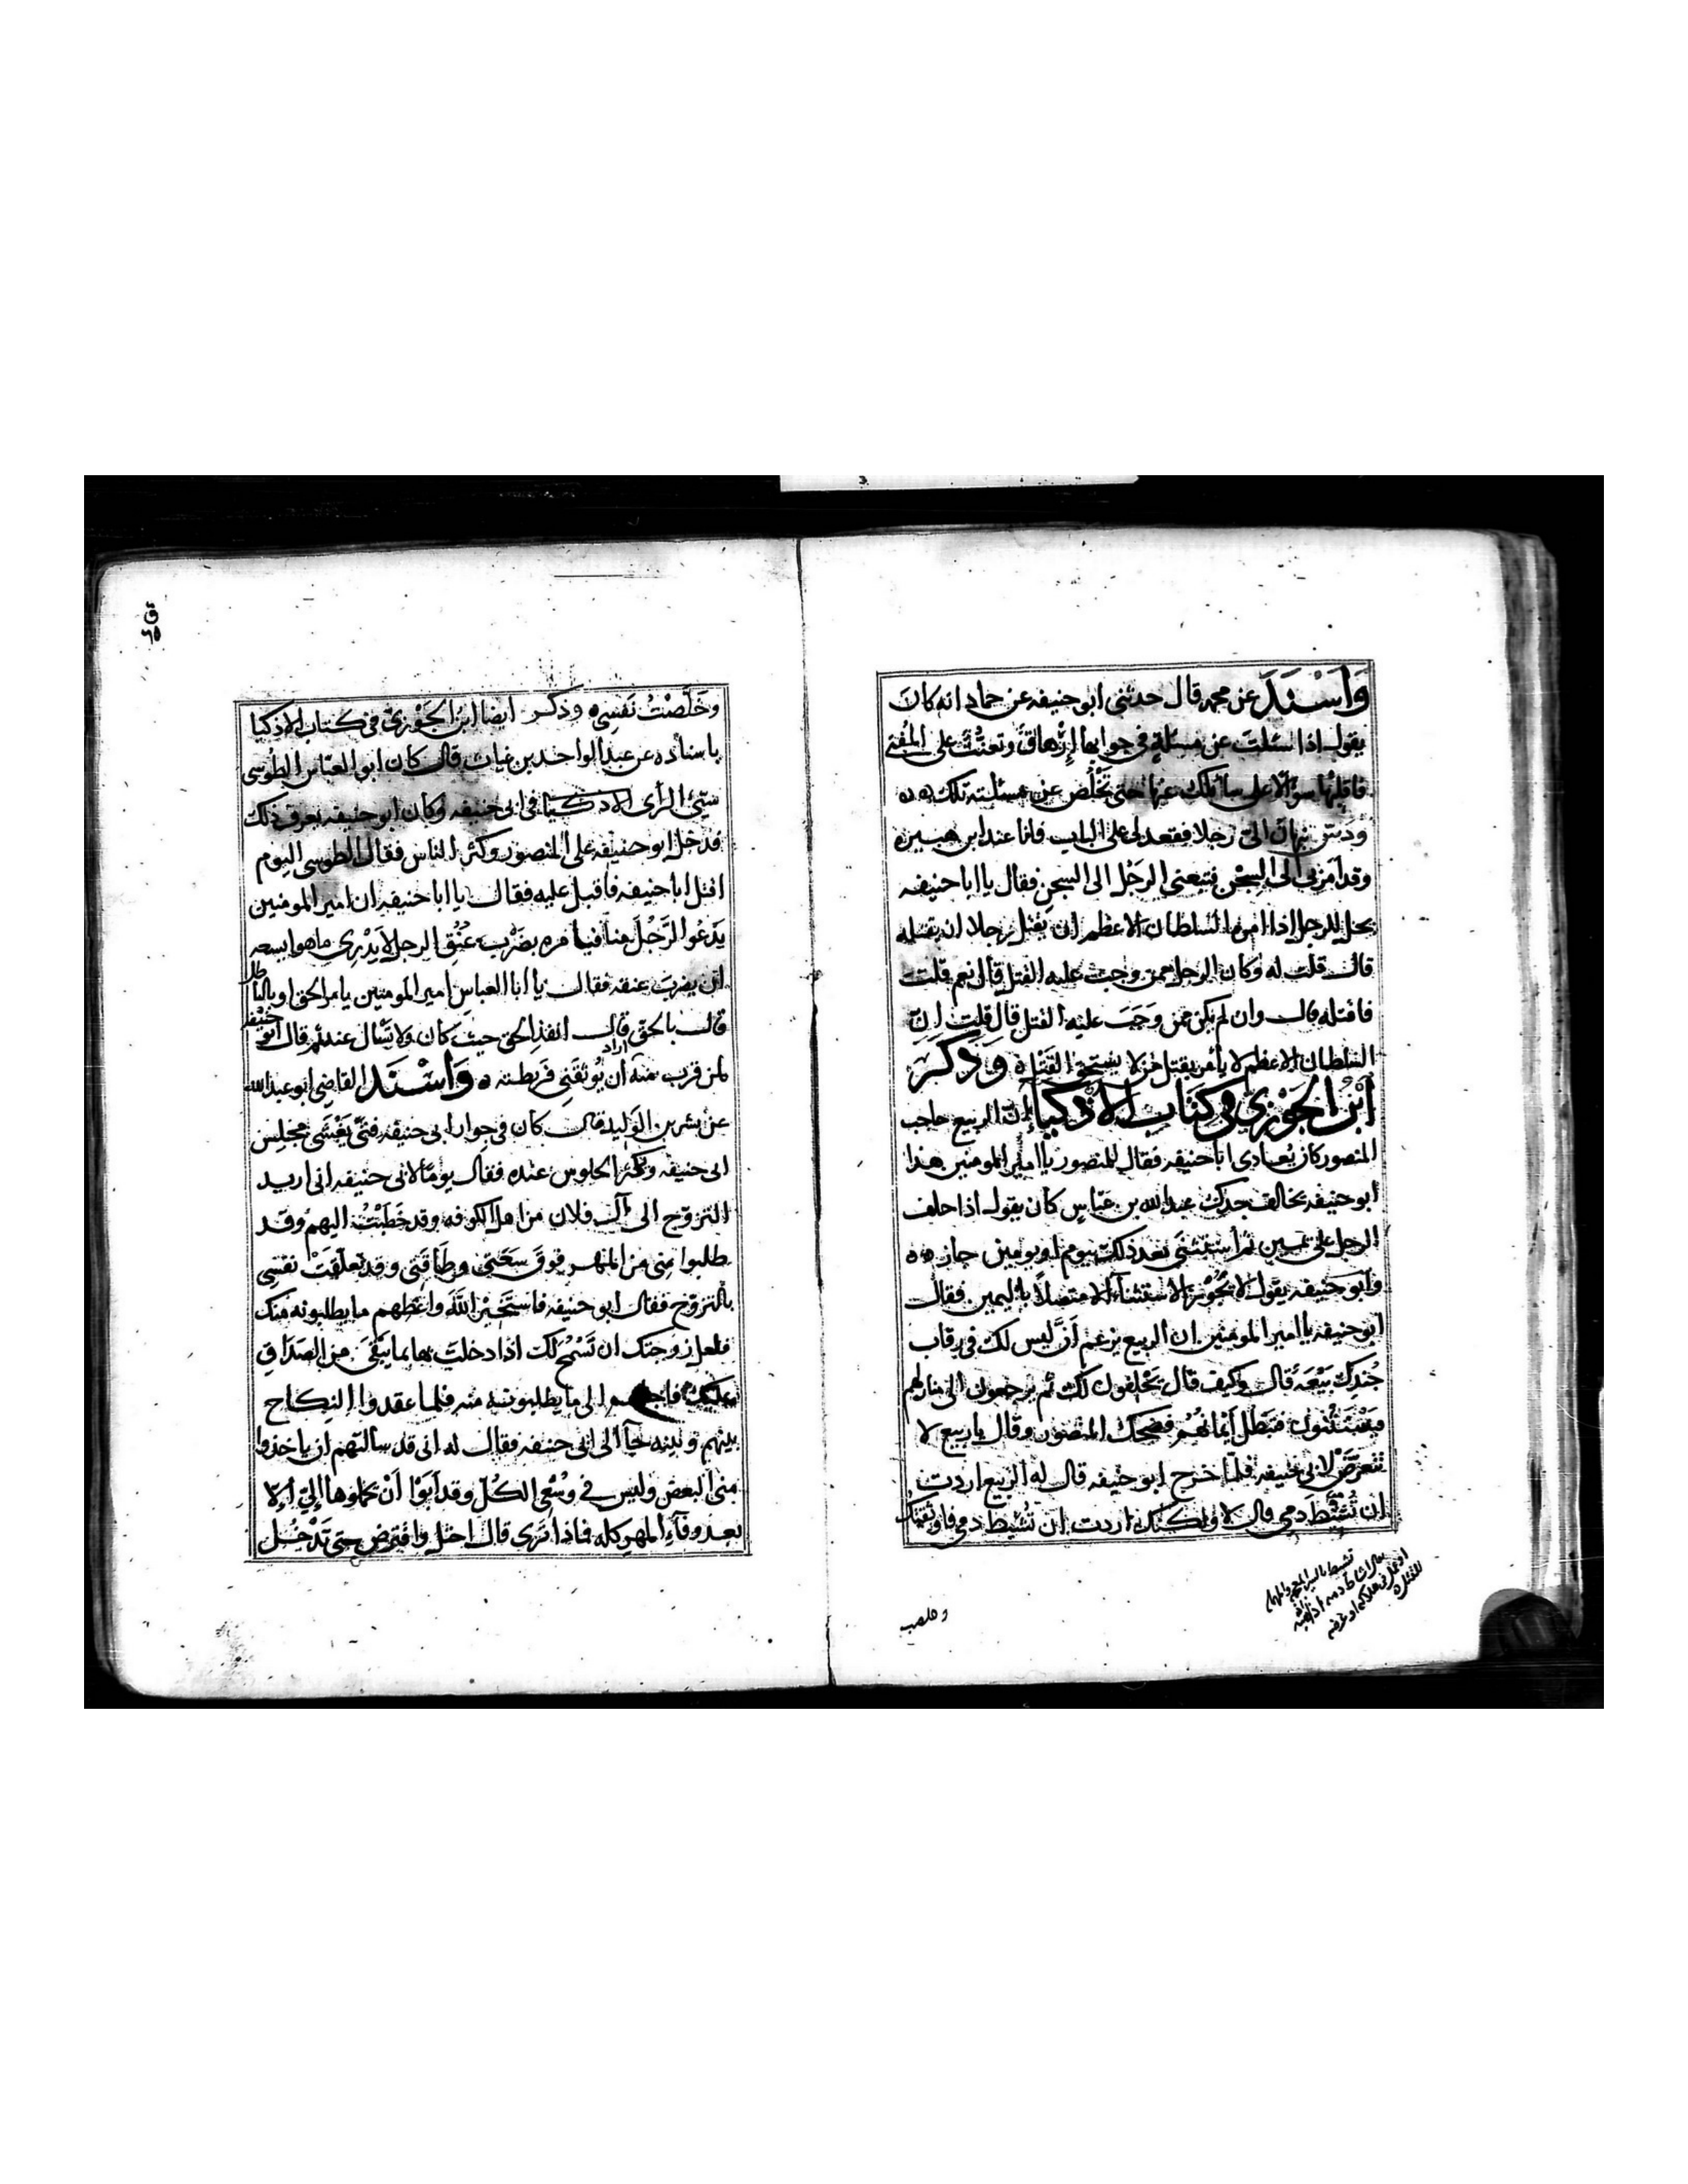 وَاَسْنَدَ عن محمد قال حدثنى ابو حنيفه عن حماد انه كانَ
يقول اذا سئلت عن مسئلة فى جوابها إرْهاق وتعنّت على المفتى
فاقلبها سؤالا على سائلك عنها حتى تخلص عن مسئلته تلك
ودسّ الىّ رجلا فقعد لى على الباب فانا عند ابن هبيره
وقد امر بى الى السجن فتبعنى الرجل الى السجن فقال يا ابا حنيفه
يحل للرجل اذا امره السلطان الاعظم ان يقتل رجلا ان يقتله
قال قلت له وكان الرجل ممن وجب عليه القتل قال نعم قلت
فاقتله قال وان لم يكن ممن وَجَبَ عليه القتل قال قلت اِنّ
السلطان الاعظم لا يأمر بقتل من لا يستحق القتل ه وَذكَر
اَبْنُ الجَوْزي في كتَاب الاَذكيا إنّ الربيع حاجب
المنصور كان يُعادى ابا حنيفه فقال للمنصور يا امير المومنين هذا
ابو حنيفه يخالف جدك عبد الله بن عبّاس كان يقول اذا حلف
الرجل على يمين ثم استثنى بعد ذلك بيوم او يومين جاز ه ه
وابو حنيفه يقول لا يجوز الاستثناء الا متصلاً باليمين فقال
ابو حنيفه يا امير المومنين ان الربيع يزعم اَنَّ ليس لك فى رقاب
جُندِك بَيْعَة قال وكيف قال يَحْلفون لك ثم يرجعون الى منازلهم
فيَسْتَثنون فتبطل أيْمانهُم فضحك المنصور وقال يا ربيع لا
تتعرّضْ لابى حنيفه فلما خرج ابو حنيفه قال له الربيع اردت
ان تُشيّط دمى قال لا ولكنك اردت ان تُشيط دمى فاوثقتك
وخلصت
وخَلّصْتُ نَفسِى ه وذكر ايضا ابنُ الجَوْزىّ فى كتاب الاذكيا
باسناده عن عبد الواحد بن غياث قال كان ابو العبّاس الطوسى
سيّئ الرأى فى ابى حنيفه وكان ابو حنيفه يعرف ذلك
فدخل ابو حنيفه على المنصور وكثر الناس فقال الطوسى اليوم
اقتل ابا حنيفه فاقبل عليه فقال يا ابا حنيفه ان امير المومنين
يَدْعُوا الرّجُلَ منا فيامره بضَرْب عُنُق الرجل لا يَدْرِى ما هو ايسعه
ان يضرب عنقه فقال يا ابا العباس امير المومنين يامر الحق او بالباطل
قال بالحق قال انفذ الحق حيث كان ولا تسال عنه ثم قال ابو حنيفه
لمن قرب منه ان هذا اراد ان يُوثقَنِى فَرَبطته ه وَاَسْنَدَ القاضى ابو عبد الله
عن بشر بن الوَليد قال كان فى جوار ابى حنيفه فتىً يَغْشَى مجلسَ
ابى حنيفه ويُكثر الجلوس عنده فقال يوماً لابى حنيفه انى اريد
التزوّج الى آل فلان من اهل الكوفه وقد خَطَبْتُ اليهم وقد
طلبوا مِنِى مِنَ المَهر فوقَ سَعَتِى وطاقَتِى وقد تعلّقَتْ نفسى
بالتزوّج فقال ابو حنيفه فاستَخِرِ اللهَ واعْطِهم ما يطلبونه منك
فلعل زوجتك ان تَسْمُح لك اذا دخلت بها بما يبْقى من الصَدَاقِ
عليك فاجابهم الى ما يطلبونه منه فلما عقدوا النِكاح
بينهم وبينه جآ الى ابى حنيفه فقال له انى قد سالتهم ان ياخذوا
منى البعضَ وليس فى وُسْعِى الكُلّ وقد اَبَوْا اَنْ يحملوها إليّ الا
بعد وفآء المهر كله فماذا ترى قال احتل واقترض حتى تَدْخُل